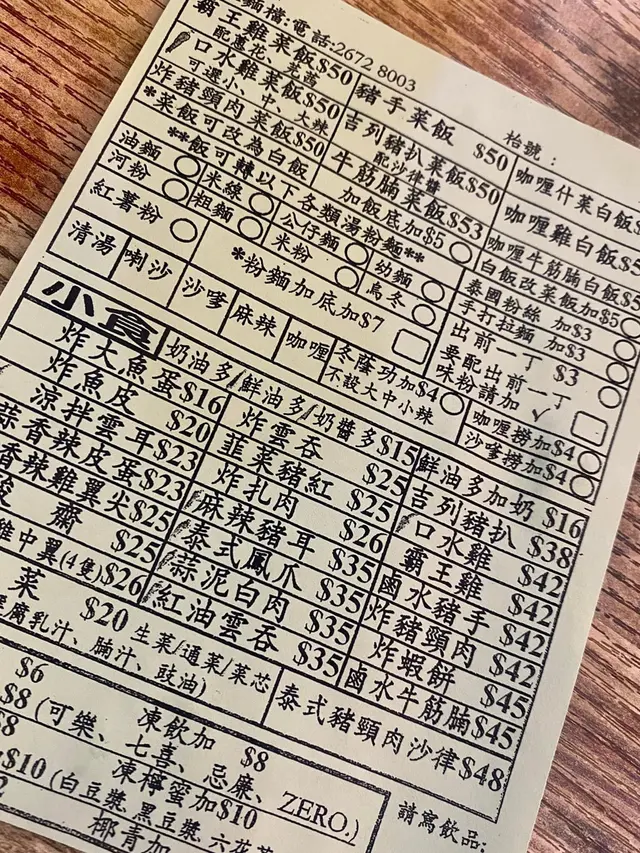 麵檔:電話:2672 8003
枱號：
霸王雞菜飯$50
配蓮花、芫荽
豬手菜飯 $50
咖喱什菜白飯
口水雞菜飯$50
可選小、中、大辣
吉列豬扒菜飯$50
配沙律醬
咖喱雞白飯
炸豬頸肉菜飯$50
牛筋腩菜飯$53
咖喱牛筋腩白飯
*菜飯可改為白飯
加飯底加$5
白飯改菜飯加$5
**飯可轉以下各類湯粉麵**
油麵
米線
公仔麵
幼麵
泰國粉絲 加$3
河粉
粗麵
米粉
烏冬
手打拉麵 加$3
紅薯粉
*粉麵加底加$7
出前一丁 $3
要配出前一丁
味粉請加✓
清湯
喇沙
沙嗲
麻辣
咖喱
冬蔭功加$4
不設大中小辣
咖喱撈加$4
沙嗲撈加$4
小食
奶油多/鮮油多/奶醬多$15
鮮油多加奶 $16
炸大魚蛋$16
炸雲吞 $25
吉列豬扒 $38
炸魚皮 $20
韭菜豬紅 $25
口水雞 $42
涼拌雲耳$23
炸扎肉 $26
霸王雞 $42
蒜香辣皮蛋$23
麻辣豬耳 $35
鹵水豬手 $42
香辣雞翼尖$25
泰式鳳爪 $35
炸豬頸肉 $42
齋 $25
蒜泥白肉 $35
炸蝦餅 $45
中翼(4隻)$26
紅油雲吞 $35
鹵水牛筋腩$45
菜 $20
生菜/通菜/菜芯
腐乳汁、腩汁、豉油)
泰式豬頸肉沙律$48
$6
凍飲加 $8
$8 (可樂、七喜、忌廉、ZERO.)
凍檸蜜加$10
$10 (白豆漿、黑豆漿、六花茶
椰青加
請寫飲品: